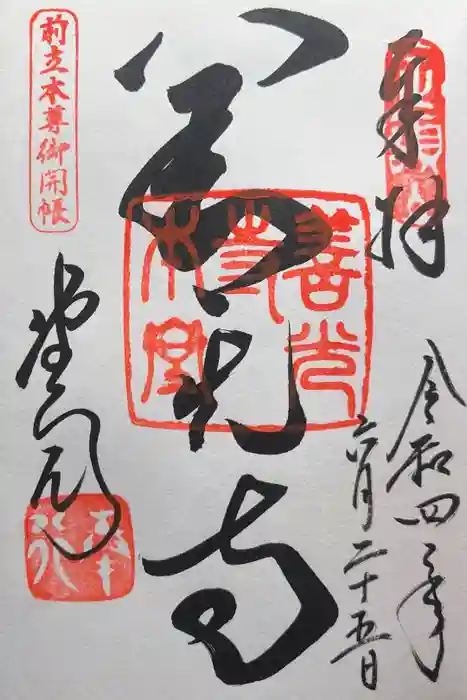 奉拝
令和四年
六月二十五日
善光寺
善光寺本堂
前立本尊御開帳
堂司